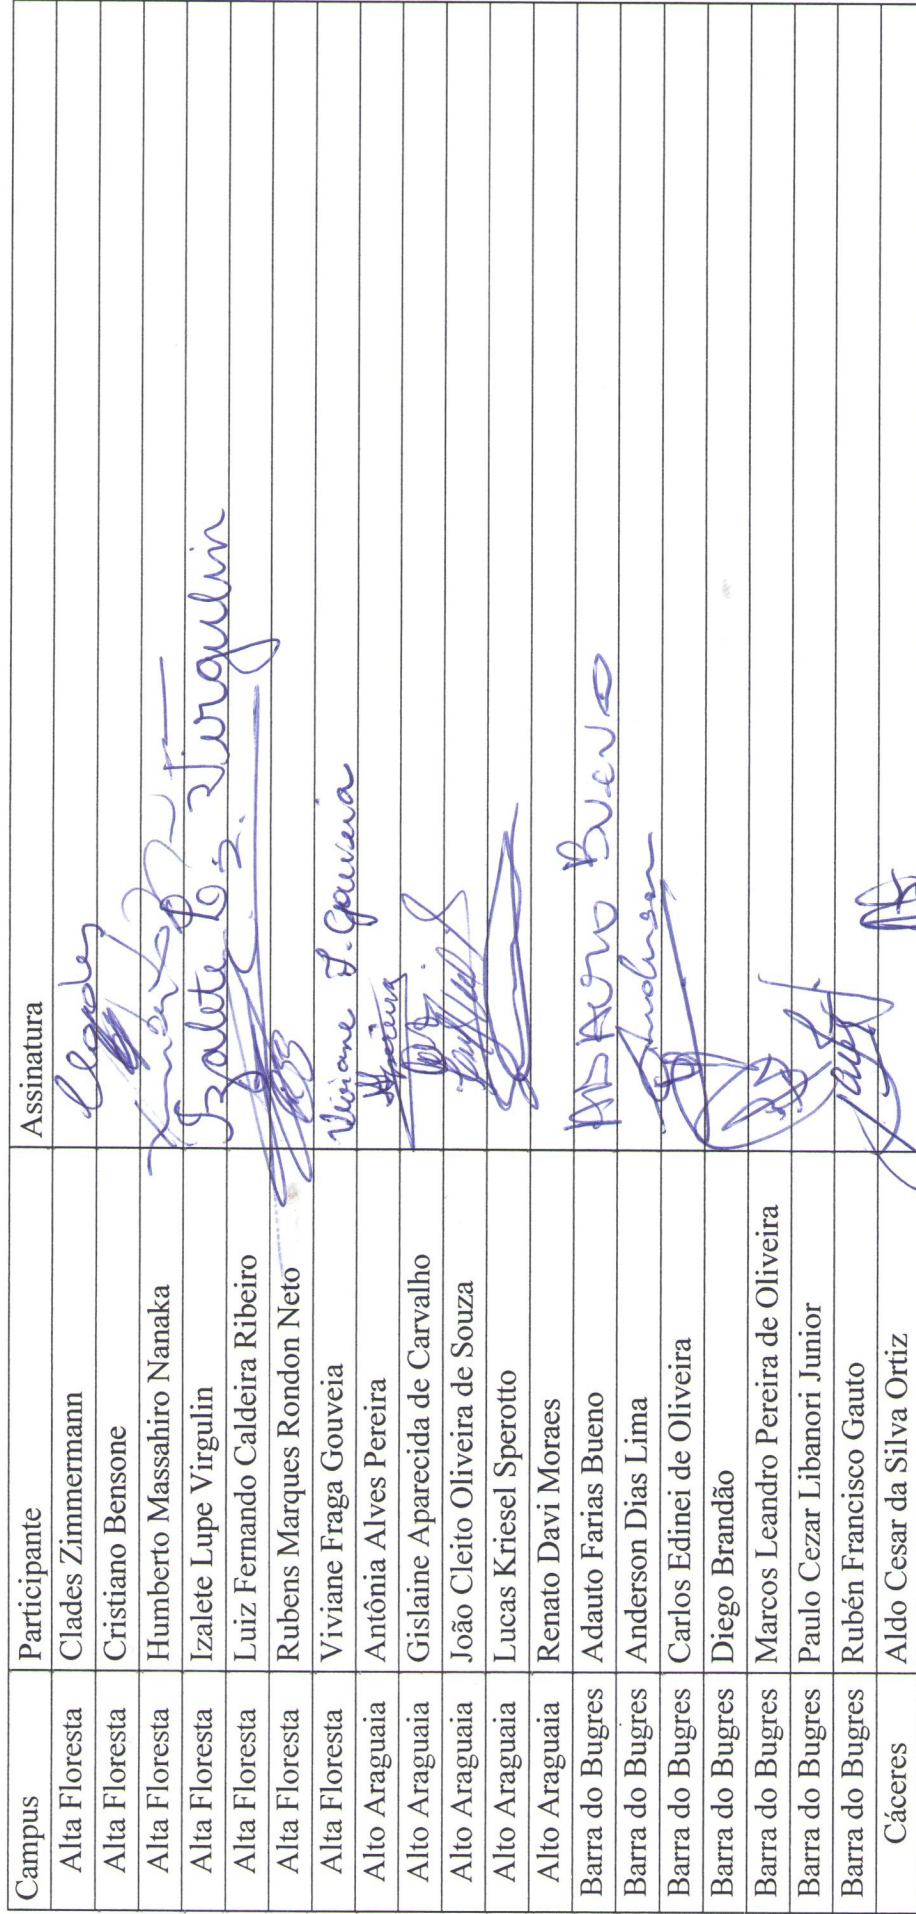 Campus Participante Assinatura
Alta Floresta Clades Zimmermann Clades
Alta Floresta Cristiano Bensone
Alta Floresta Humberto Massahiro Nanaka
Alta Floresta Izalete Lupe Virgulin Izalete L. Virgulin
Alta Floresta Luiz Fernando Caldeira Ribeiro
Alta Floresta Rubens Marques Rondon Neto
Alta Floresta Viviane Fraga Gouveia Viviane F. Gouveia
Alto Araguaia Antônia Alves Pereira
Alto Araguaia Gislaine Aparecida de Carvalho
Alto Araguaia João Cleito Oliveira de Souza
Alto Araguaia Lucas Kriesel Sperotto
Alto Araguaia Renato Davi Moraes
Barra do Bugres Adauto Farias Bueno ADAUTO BUENO
Barra do Bugres Anderson Dias Lima Anderson
Barra do Bugres Carlos Edinei de Oliveira
Barra do Bugres Diego Brandão
Barra do Bugres Marcos Leandro Pereira de Oliveira
Barra do Bugres Paulo Cezar Libanori Junior
Barra do Bugres Rubén Francisco Gauto
Cáceres Aldo Cesar da Silva Ortiz